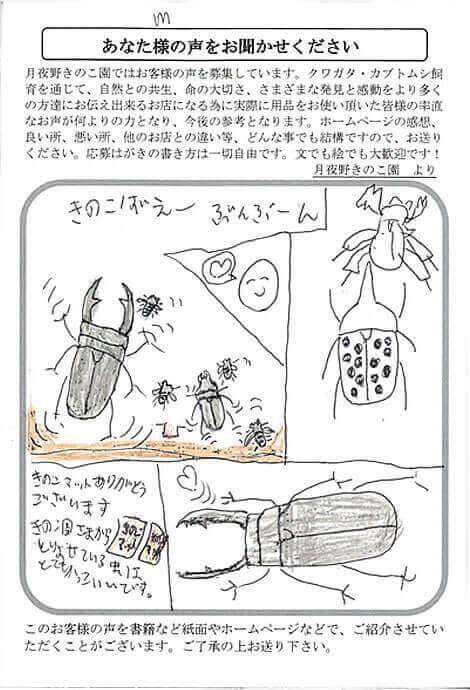 m
あなた様の声をお聞かせください
月夜野きのこ園ではお客様の声を募集しています。クワガタ・カブトムシ飼
育を通じて、自然との共生、命の大切さ、さまざまな発見と感動をより多く
の方達にお伝え出来るお店になる為に実際に用品をお使い頂いた皆様の率直
なお声が何よりの力となり、今後の参考となります。ホームページの感想、
良い所、悪い所、他のお店との違い等、どんな事でも結構ですので、お送り
ください。応募はがきの書き方は一切自由です。文でも絵でも大歓迎です！
月夜野きのこ園　より
きのこばえー　ぶんぶーん
きのこマットありがとう
ございます
きの園さまから
とりよせている虫は
とてもかっこいいです。
きのこ
マット
このお客様の声を書籍など紙面やホームページなどで、ご紹介させてい
ただくことがございます。ご了承の上お送り下さい。